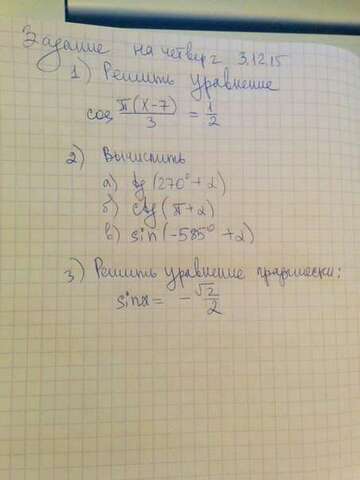 Задание на четверг 3.12.15
1) Решить уравнение
cos π(x-7)/3 = 1/2
2) Вычислить
а) tg (270° + α)
б) ctg (π + α)
в) sin (-585° + α)
3) Решить уравнение графически:
sinx = - √2/2